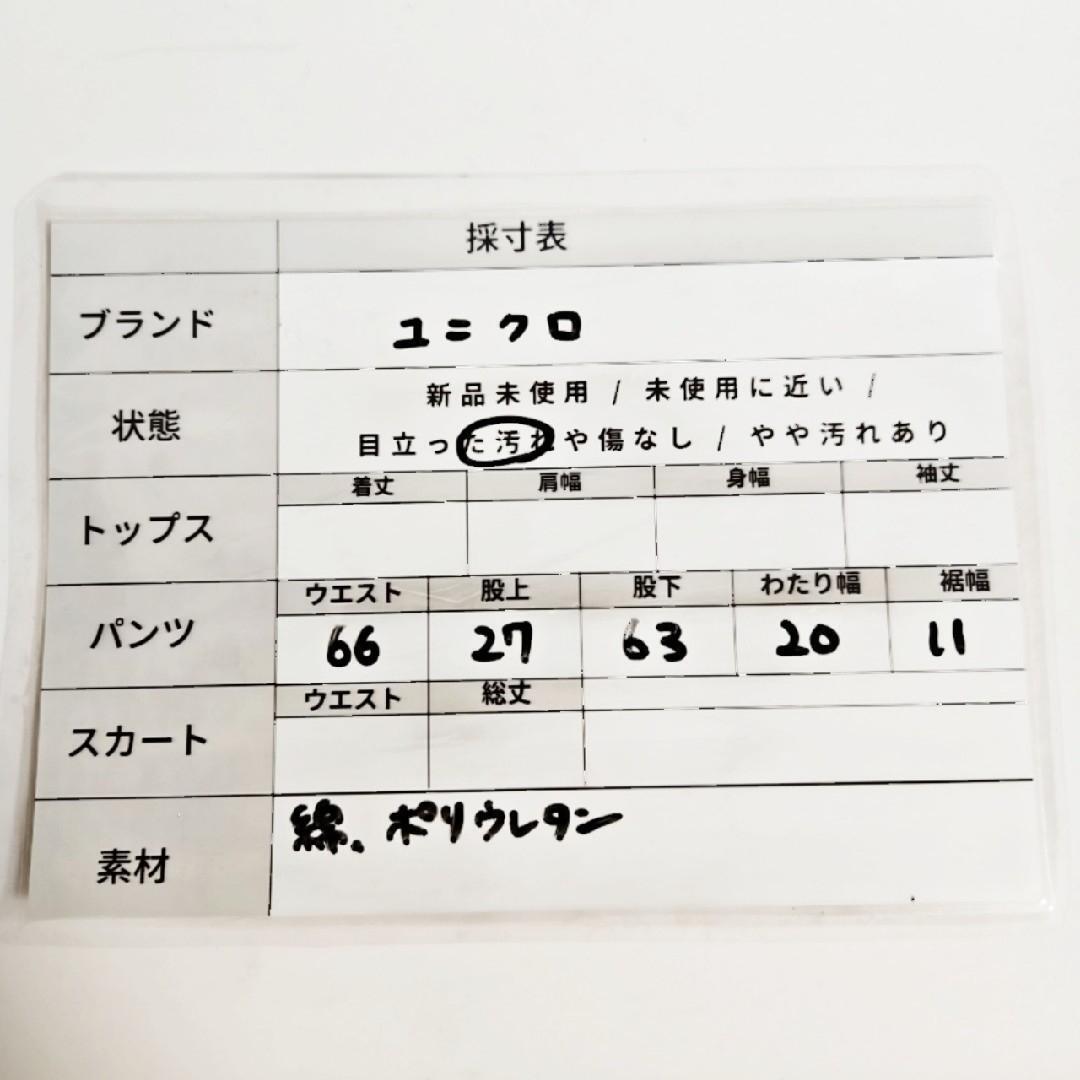 採寸表
ブランド ユニクロ
状態 新品未使用 / 未使用に近い /
目立った汚れや傷なし / やや汚れあり
トップス 着丈 肩幅 身幅 袖丈
パンツ ウエスト 股上 股下 わたり幅 裾幅
66 27 63 20 11
スカート ウエスト 総丈
素材 綿、ポリウレタン